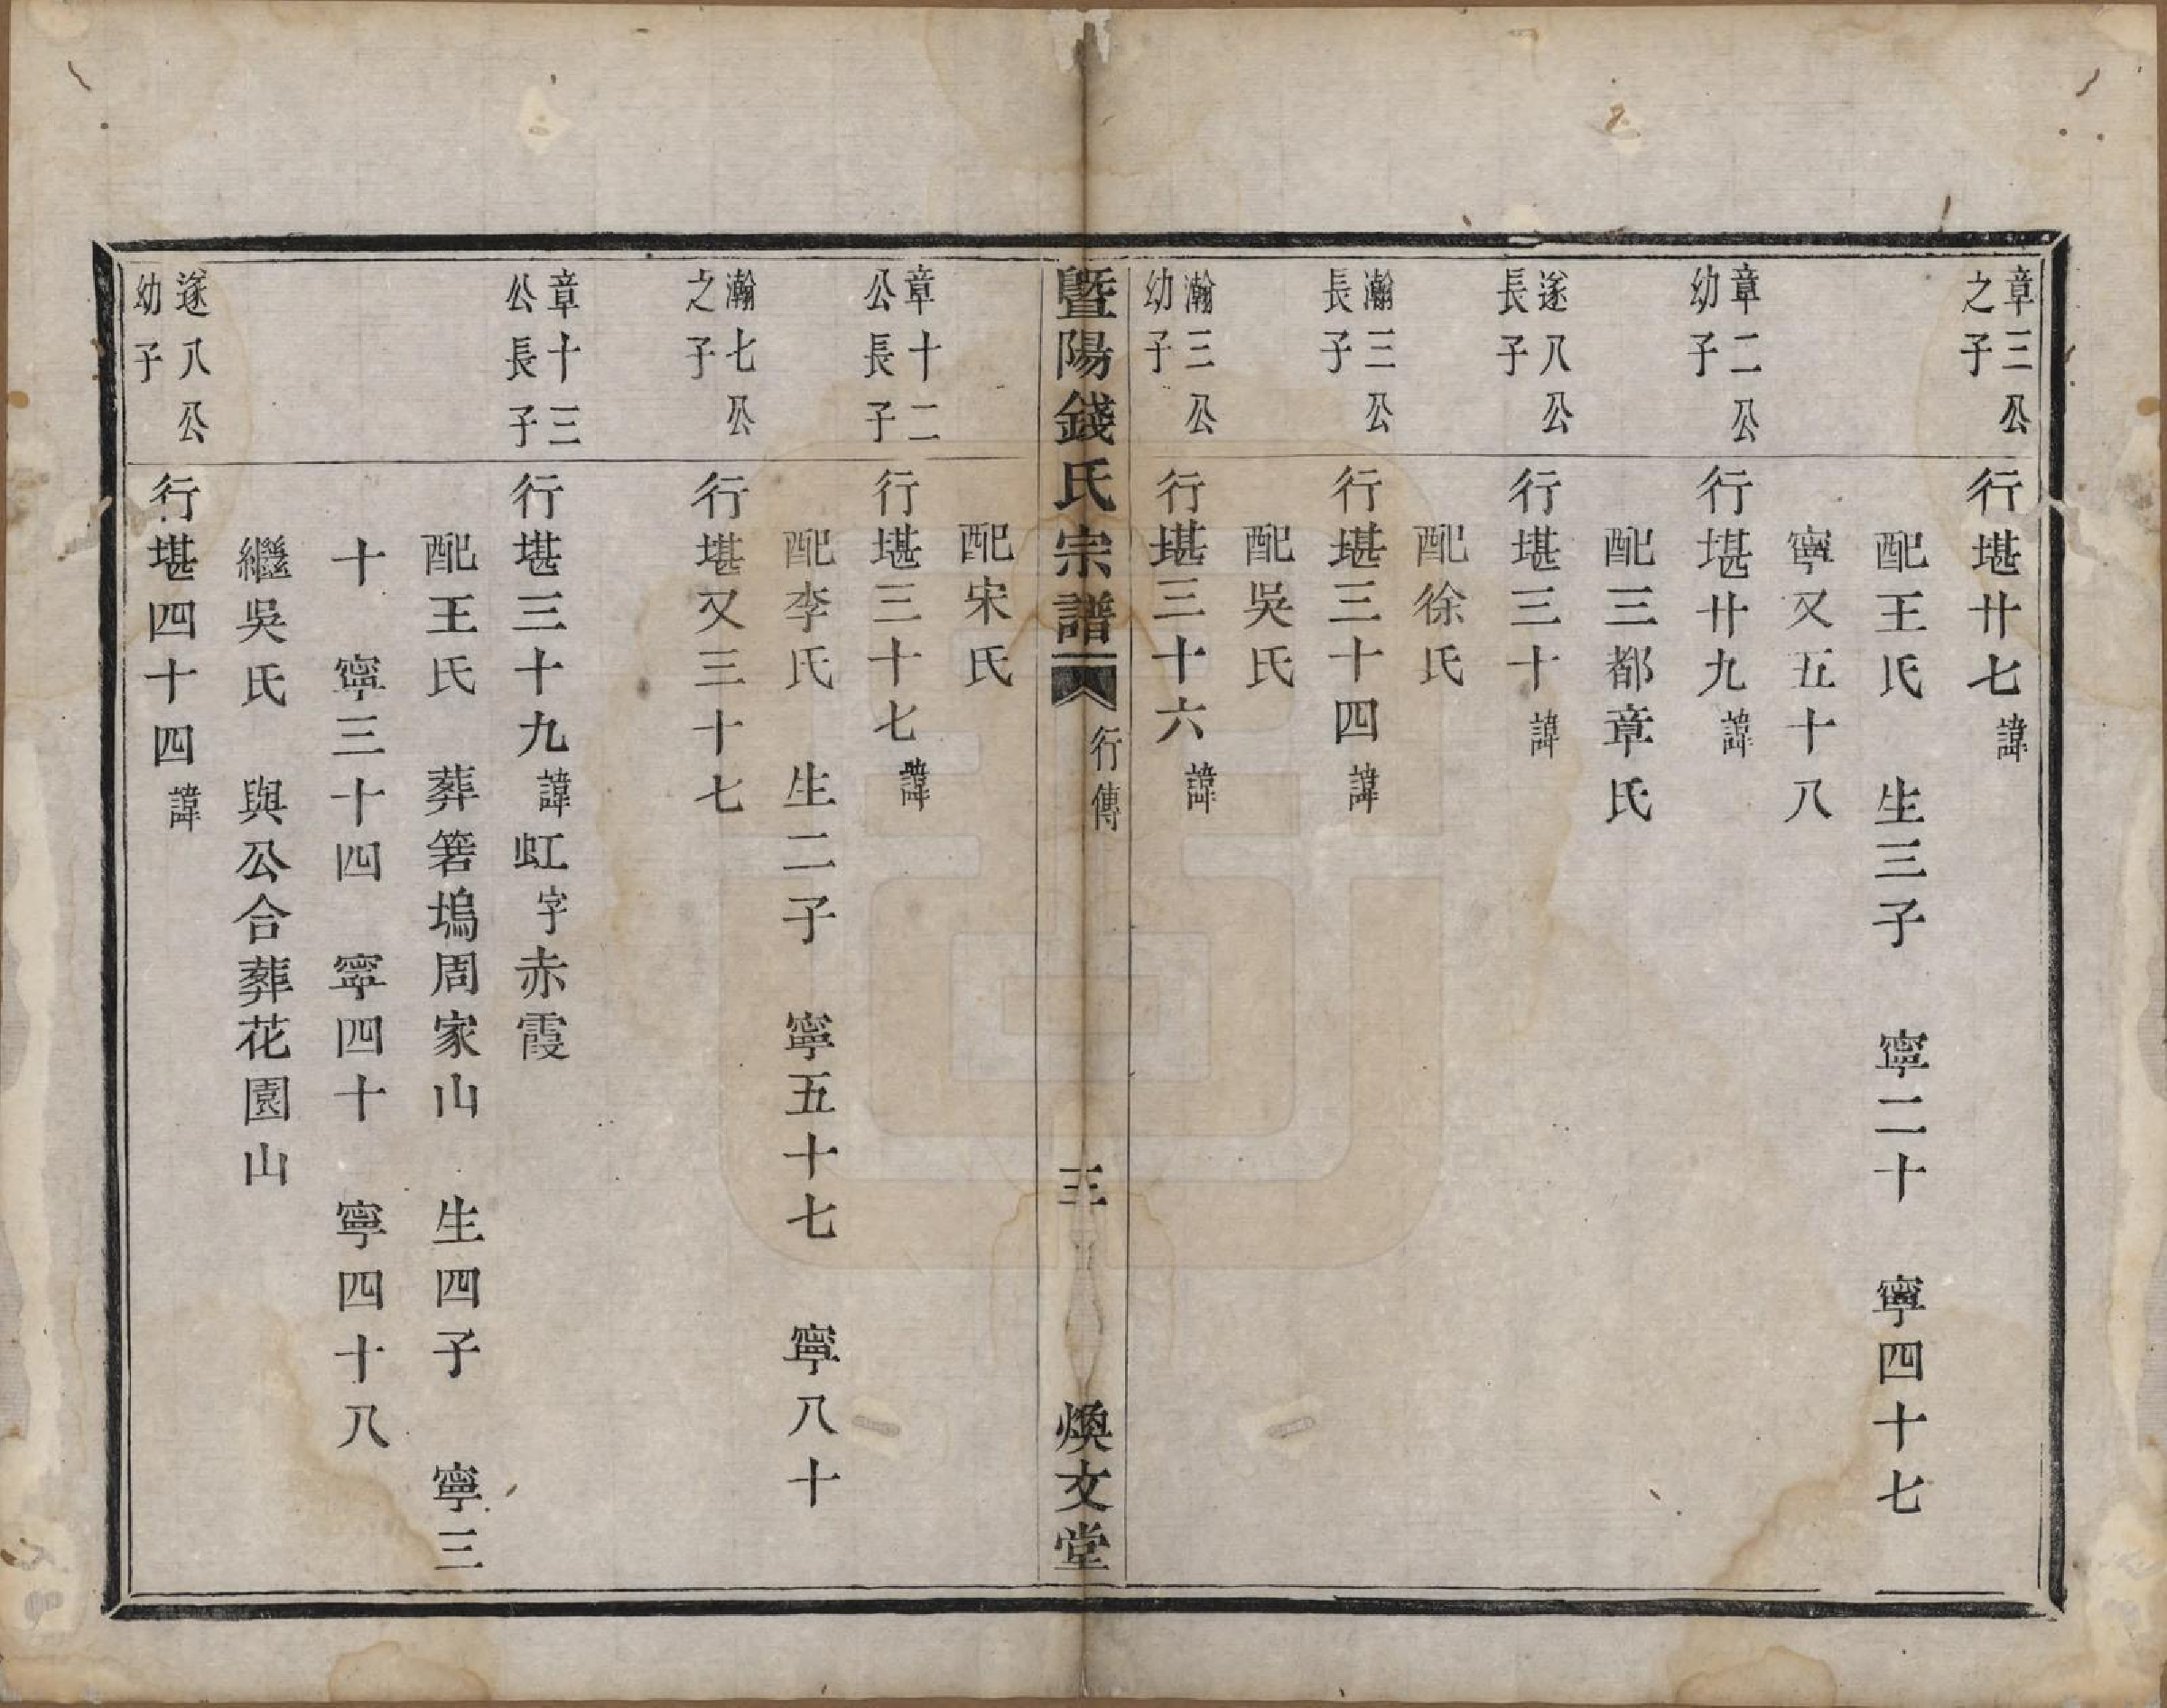 章三公之子
行堪廿七諱
配王氏　生三子　寧二十　寧四十七
寧又五十八
章二公幼子
行堪廿九諱
配三都章氏
遂八公長子
行堪三十諱
配徐氏
瀚三公長子
行堪三十四諱
配吳氏
瀚三公幼子
行堪三十六諱
暨陽錢氏宗譜　行傳　三　煥文堂
配宋氏
章十二公長子
行堪三十七諱
配李氏　生二子　寧五十七　寧八十
瀚七公之子
行堪又三十七
章十三公長子
行堪三十九諱虹字赤霞
配王氏　葬箬塢周家山　生四子　寧三
十　寧三十四　寧四十　寧四十八
繼吳氏　與公合葬花園山
遂八公幼子
行堪四十四諱